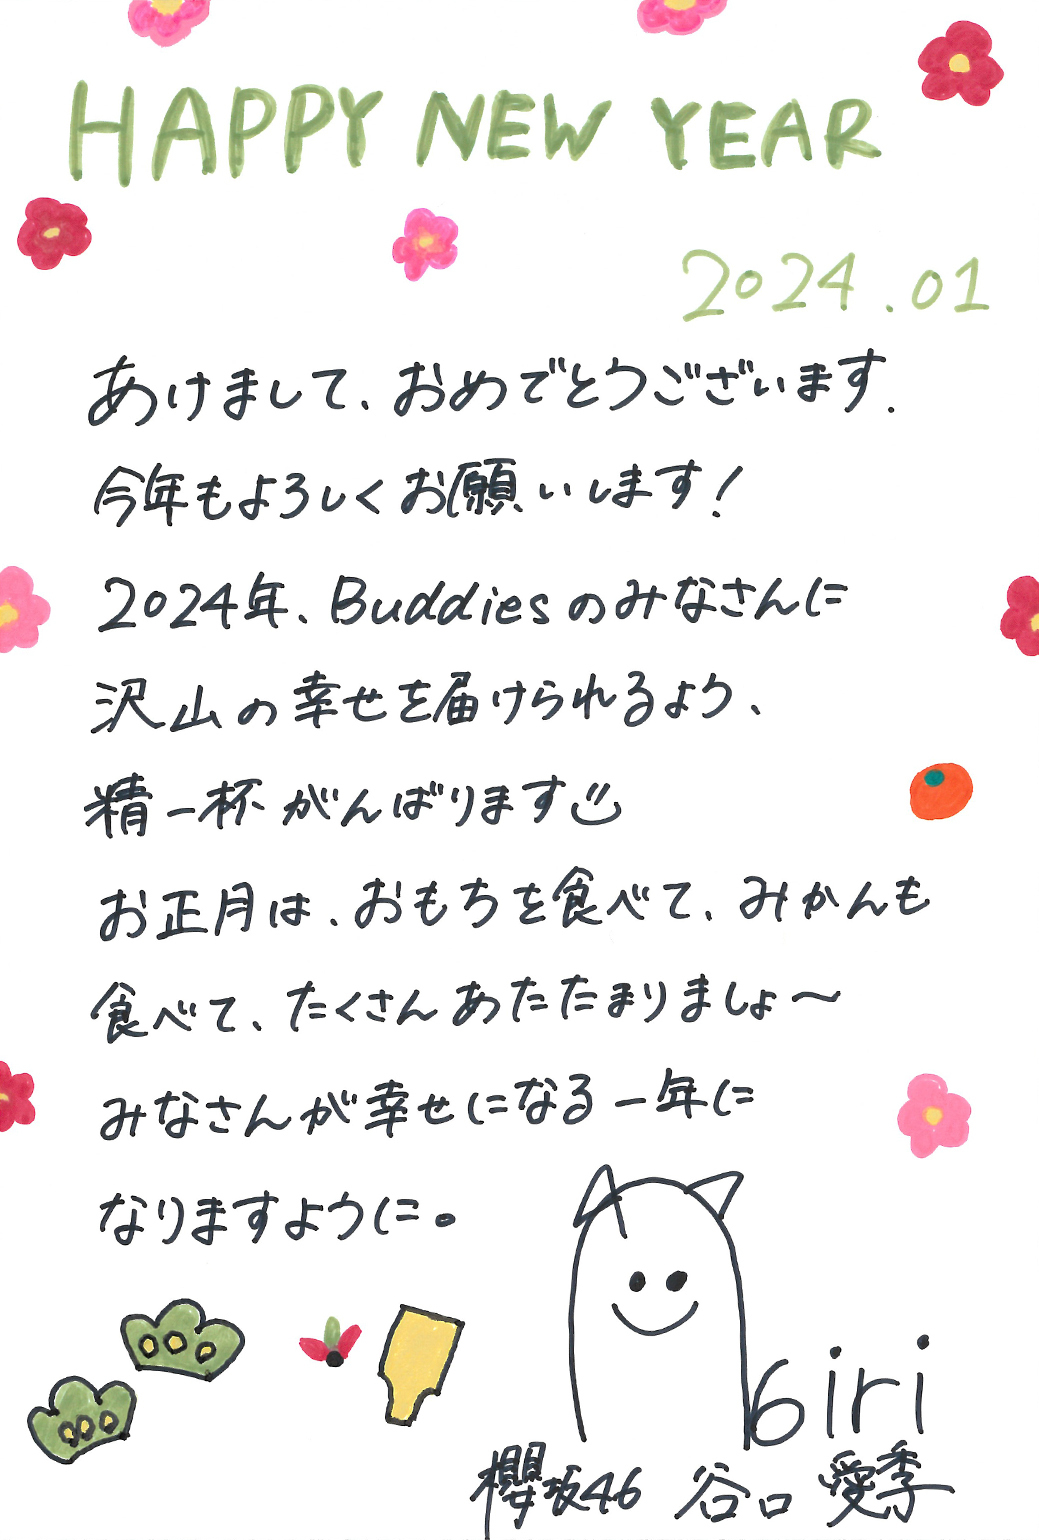 HAPPY NEW YEAR
2024.01
あけまして、おめでとうございます.
今年もよろしくお願いします!
2024年、Buddiesのみなさんに
沢山の幸せを届けられるよう、
精一杯がんばります
お正月は、おもちを食べて、みかんも
食べて、たくさんあたたまりましょ〜
みなさんが幸せになる一年に
なりますように。
biri
櫻坂46 谷口 愛季